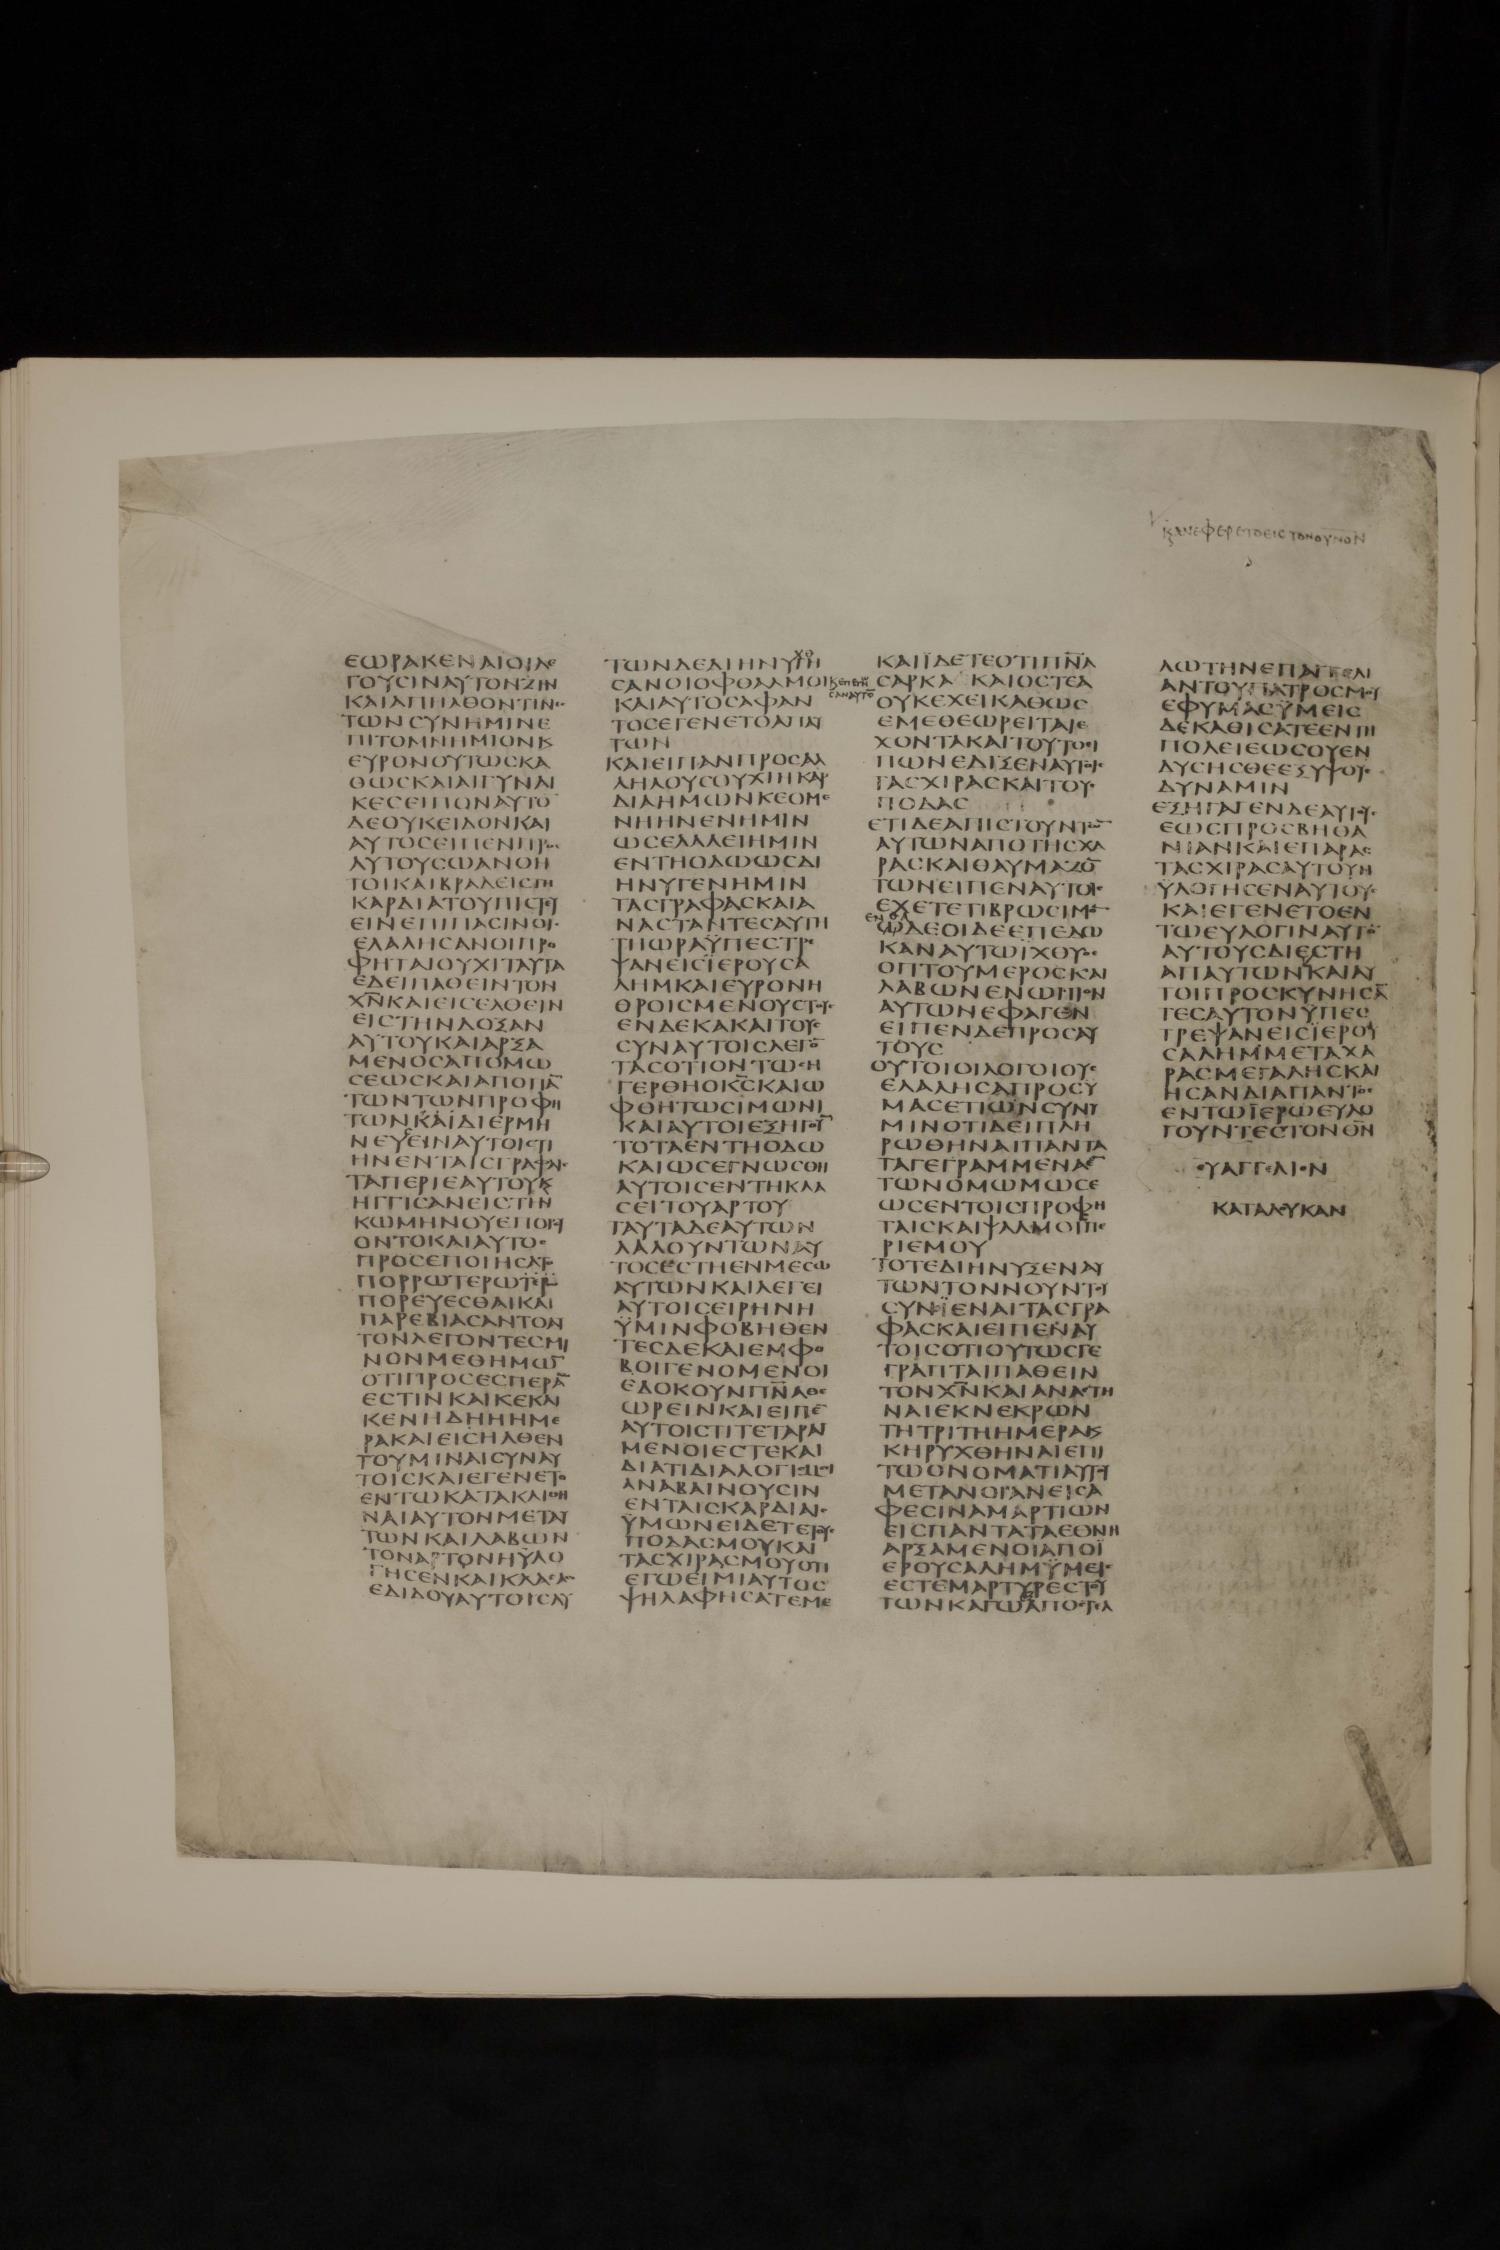 κ ΑΝΕΦΕΡΕΤΟ ΕΙϹ ΤΟΝ ΟΥΝΟΝ
ΕΩΡΑΚΕΝΑΙΟΙΛΕ
ΓΟΥϹΙΝΑΥΤΟΝΖΗΝ
ΚΑΙΑΠΗΛΘΟΝΤΙΝΕϹ
ΤΩΝϹΥΝΗΜΙΝΕ
ΠΙΤΟΜΝΗΜΙΟΝΚ
ΕΥΡΟΝΟΥΤΩϹΚΑ
ΘΩϹΚΑΙΑΙΓΥΝΑΙ
ΚΕϹΕΙΠΟΝΑΥΤΟ
ΔΕΟΥΚΕΙΔΟΝΚΑΙ
ΑΥΤΟϹΕΙΠΕΝΠΡΟϹ
ΑΥΤΟΥϹΩΑΝΟΗ
ΤΟΙΚΑΙΒΡΑΔΕΙϹΤΗ
ΚΑΡΔΙΑΤΟΥΠΙϹΤΕΥ
ΕΙΝΕΠΙΠΑϹΙΝΟΙϹ
ΕΛΑΛΗϹΑΝΟΙΠΡΟ
ΦΗΤΑΙΟΥΧΙΤΑΥΤΑ
ΕΔΕΙΠΑΘΕΙΝΤΟΝ
ΧΝ̅ΚΑΙΕΙϹΕΛΘΕΙΝ
ΕΙϹΤΗΝΔΟΞΑΝ
ΑΥΤΟΥΚΑΙΑΡΞΑ
ΜΕΝΟϹΑΠΟΜΩ
ϹΕΩϹΚΑΙΑΠΟΠΑ̅
ΤΩΝΤΩΝΠΡΟΦΗ
ΤΩΝΚΑΙΔΙΕΡΜΗ
ΝΕΥΕΙΝΑΥΤΟΙϹΤΙ
ΗΝΕΝΤΑΙϹΓΡΑΦΑΙϹ
ΤΑΠΕΡΙΕΑΥΤΟΥΚ
ΗΓΓΙϹΑΝΕΙϹΤΗΝ
ΚΩΜΗΝΟΥΕΠΟΡΕΥ
ΟΝΤΟΚΑΙΑΥΤΟϹ
ΠΡΟϹΕΠΟΙΗϹΑΤΟ
ΠΟΡΡΩΤΕΡΩ
ΠΟΡΕΥΕϹΘΑΙΚΑΙ
ΠΑΡΕΒΙΑϹΑΝΤΟΝ
ΤΟΝΛΕΓΟΝΤΕϹΜΙ
ΝΟΝΜΕΘΗΜΩ̅
ΟΤΙΠΡΟϹΕϹΠΕΡΑ̅
ΕϹΤΙΝΚΑΙΚΕΚΛΙ
ΚΕΝΗΔΗΗΗΜΕ
ΡΑΚΑΙΕΙϹΗΛΘΕΝ
ΤΟΥΜΙΝΑΙϹΥΝΑΥ
ΤΟΙϹΚΑΙΕΓΕΝΕΤΟ
ΕΝΤΩΚΑΤΑΚΛΙΘΗ
ΝΑΙΑΥΤΟΝΜΕΤΑΥ
ΤΩΝΚΑΙΛΑΒΩΝ
ΤΟΝΑΡΤΟΝΗΥΛΟ
ΓΗϹΕΝΚΑΙΚΛΑϹΑϹ
ΕΔΙΔΟΥΑΥΤΟΙϹΑΥ
ΤΩΝΔΕΔΙΗΝΥΓΗ
ϹΑΝΟΙΟΦΘΑΛΜΟΙΚΕΠΕΓΝΩ
ϹΑΝΑΥΤΟ̅
ΚΑΙΑΥΤΟϹΑΦΑΝ
ΤΟϹΕΓΕΝΕΤΟΑΠΑΥ
ΤΩΝ
ΚΑΙΕΙΠΑΝΠΡΟϹΑΛ
ΛΗΛΟΥϹΟΥΧΙΗΚΑΡ
ΔΙΑΗΜΩΝΚΕΟΜΕ
ΝΗΗΝΕΝΗΜΙΝ
ΩϹΕΛΑΛΕΙΗΜΙΝ
ΕΝΤΗΟΔΩΩϹΔΙ
ΗΝΥΓΕΝΗΜΙΝ
ΤΑϹΓΡΑΦΑϹΚΑΙΑ
ΝΑϹΤΑΝΤΕϹΑΥΤΗ
ΤΗΩΡΑΫΠΕϹΤΡΕ
ΨΑΝΕΙϹΪΕΡΟΥϹΑ
ΛΗΜΚΑΙΕΥΡΟΝΗ
ΘΡΟΙϹΜΕΝΟΥϹΤΟΥϹ
ΕΝΔΕΚΑΚΑΙΤΟΥϹ
ϹΥΝΑΥΤΟΙϹΛΕΓΟ̅
ΤΑϹΟΤΙΟΝΤΩϹΗ
ΓΕΡΘΗΟΚϹ̅ΚΑΙΩ
ΦΘΗΤΩϹΙΜΩΝΙ
ΚΑΙΑΥΤΟΙΕΞΗΓΟΥ̅
ΤΟΤΑΕΝΤΗΟΔΩ
ΚΑΙΩϹΕΓΝΩϹΘΗ
ΑΥΤΟΙϹΕΝΤΗΚΛΑ
ϹΕΙΤΟΥΑΡΤΟΥ
ΤΑΥΤΑΔΕΑΥΤΩΝ
ΛΑΛΟΥΝΤΩΝΑΥ
ΤΟϹΕϹΤΗΕΝΜΕϹΩ
ΑΥΤΩΝΚΑΙΛΕΓΕΙ
ΑΥΤΟΙϹΕΙΡΗΝΗ
ΫΜΙΝΦΟΒΗΘΕΝ
ΤΕϹΔΕΚΑΙΕΜΦΟ
ΒΟΙΓΕΝΟΜΕΝΟΙ
ΕΔΟΚΟΥΝΠΝ̅ΑΘΕ
ΩΡΕΙΝΚΑΙΕΙΠΕ̅
ΑΥΤΟΙϹΤΙΤΕΤΑΡΑΓ
ΜΕΝΟΙΕϹΤΕΚΑΙ
ΔΙΑΤΙΔΙΑΛΟΓΙϹΜΟΙ
ΑΝΑΒΑΙΝΟΥϹΙΝ
ΕΝΤΑΙϹΚΑΡΔΙΑΙϹ
ΫΜΩΝΕΙΔΕΤΕΤΟΥϹ
ΠΟΔΑϹΜΟΥΚΑΙ
ΤΑϹΧΙΡΑϹΜΟΥΟΤΙ
ΕΓΩΕΙΜΙΑΥΤΟϹ
ΨΗΛΑΦΗϹΑΤΕΜΕ
ΚΑΙΪΔΕΤΕΟΤΙΠΝ̅Α
ϹΑΡΚΑ ΚΑΙΟϹΤΕΑ
ΟΥΚΕΧΕΙΚΑΘΩϹ
ΕΜΕΘΕΩΡΕΙΤΑΙΕ
ΧΟΝΤΑΚΑΙΤΟΥΤΟΕΙ
ΠΩΝΕΔΙΞΕΝΑΥΤΟΙϹ
ΤΑϹΧΙΡΑϹΚΑΙΤΟΥϹ
ΠΟΔΑϹ
ΕΤΙΔΕΑΠΙϹΤΟΥΝΤΩ̅
ΑΥΤΩΝΑΠΟΤΗϹΧΑ
ΡΑϹΚΑΙΘΑΥΜΑΖΟ̅
ΤΩΝΕΙΠΕΝΑΥΤΟΙϹ
ΕΧΕΤΕΤΙΒΡΩϹΙΜΟ̅
ΕΝΘΑ
ΩΔΕΟΙΔΕΕΠΕΔΩ
ΚΑΝΑΥΤΩΪΧΘΥΟϹ
ΟΠΤΟΥΜΕΡΟϹΚΑΙ
ΛΑΒΩΝΕΝΩΠΙΟΝ
ΑΥΤΩΝΕΦΑΓΕΝ
ΕΙΠΕΝΔΕΠΡΟϹΑΥ
ΤΟΥϹ
ΟΥΤΟΙΟΙΛΟΓΟΙΟΥϹ
ΕΛΑΛΗϹΑΠΡΟϹΫ
ΜΑϹΕΤΙΩΝϹΥΝΫ
ΜΙΝΟΤΙΔΕΙΠΛΗ
ΡΩΘΗΝΑΙΠΑΝΤΑ
ΤΑΓΕΓΡΑΜΜΕΝΑΕ̅
ΤΩΝΟΜΩΜΩϹΕ
ΩϹΕΝΤΟΙϹΠΡΟΦΗ
ΤΑΙϹΚΑΙΨΑΛΜΟΙϹΠΕ
ΡΙΕΜΟΥ
ΤΟΤΕΔΙΗΝΥΞΕΝΑΥ
ΤΩΝΤΟΝΝΟΥΝΤΟΥ
ϹΥΝΪΕΝΑΙΤΑϹΓΡΑ
ΦΑϹΚΑΙΕΙΠΕΝΑΥ
ΤΟΙϹΟΤΙΟΥΤΩϹΓΕ
ΓΡΑΠΤΑΙΠΑΘΕΙΝ
ΤΟΝΧΝ̅ΚΑΙΑΝΑϹΤΗ
ΝΑΙΕΚΝΕΚΡΩΝ
ΤΗΤΡΙΤΗΗΜΕΡΑΚ
ΚΗΡΥΧΘΗΝΑΙΕΠΙ
ΤΩΟΝΟΜΑΤΙΑΥΤΟΥ
ΜΕΤΑΝΟΙΑΝΕΙϹΑ
ΦΕϹΙΝΑΜΑΡΤΙΩΝ
ΕΙϹΠΑΝΤΑΤΑΕΘΝΗ
ΑΡΞΑΜΕΝΟΙΑΠΟΪ
ΕΡΟΥϹΑΛΗΜΫΜΕΙϹ
ΕϹΤΕΜΑΡΤΥΡΕϹΤΟΥ
ΤΩΝΚΑΓΩΑΠΟϹΤΕΛ
ΛΩΤΗΝΕΠΑΓΓΕΛΙ
ΑΝΤΟΥΠΑΤΡΟϹΜΟΥ
ΕΦΥΜΑϹΫΜΕΙϹ
ΔΕΚΑΘΙϹΑΤΕΕΝΤΗ
ΠΟΛΕΙΕΩϹΟΥΕΝ
ΔΥϹΗϹΘΕΕΞΥΨΟΥϹ
ΔΥΝΑΜΙΝ
ΕΞΗΓΑΓΕΝΔΕΑΥΤΟΥϹ
ΕΩϹΠΡΟϹΒΗΘΑ
ΝΙΑΝΚΑΙΕΠΑΡΑϹ
ΤΑϹΧΙΡΑϹΑΥΤΟΥΗ
ΫΛΟΓΗϹΕΝΑΥΤΟΥϹ
ΚΑΙΕΓΕΝΕΤΟΕΝ
ΤΩΕΥΛΟΓΙΝΑΥΤΟ̅
ΑΥΤΟΥϹΔΙΕϹΤΗ
ΑΠΑΥΤΩΝΚΑΙΑΥ
ΤΟΙΠΡΟϹΚΥΝΗϹΑ̅
ΤΕϹΑΥΤΟΝΫΠΕϹ
ΤΡΕΨΑΝΕΙϹΪΕΡΟΥ
ϹΑΛΗΜΜΕΤΑΧΑ
ΡΑϹΜΕΓΑΛΗϹΚΑΙ
ΗϹΑΝΔΙΑΠΑΝΤΟϹ
ΕΝΤΩΪΕΡΩΕΥΛΟ
ΓΟΥΝΤΕϹΤΟΝΘΝ̅
ΕΥΑΓΓΕΛΙΟΝ
ΚΑΤΑΛΟΥΚΑΝ